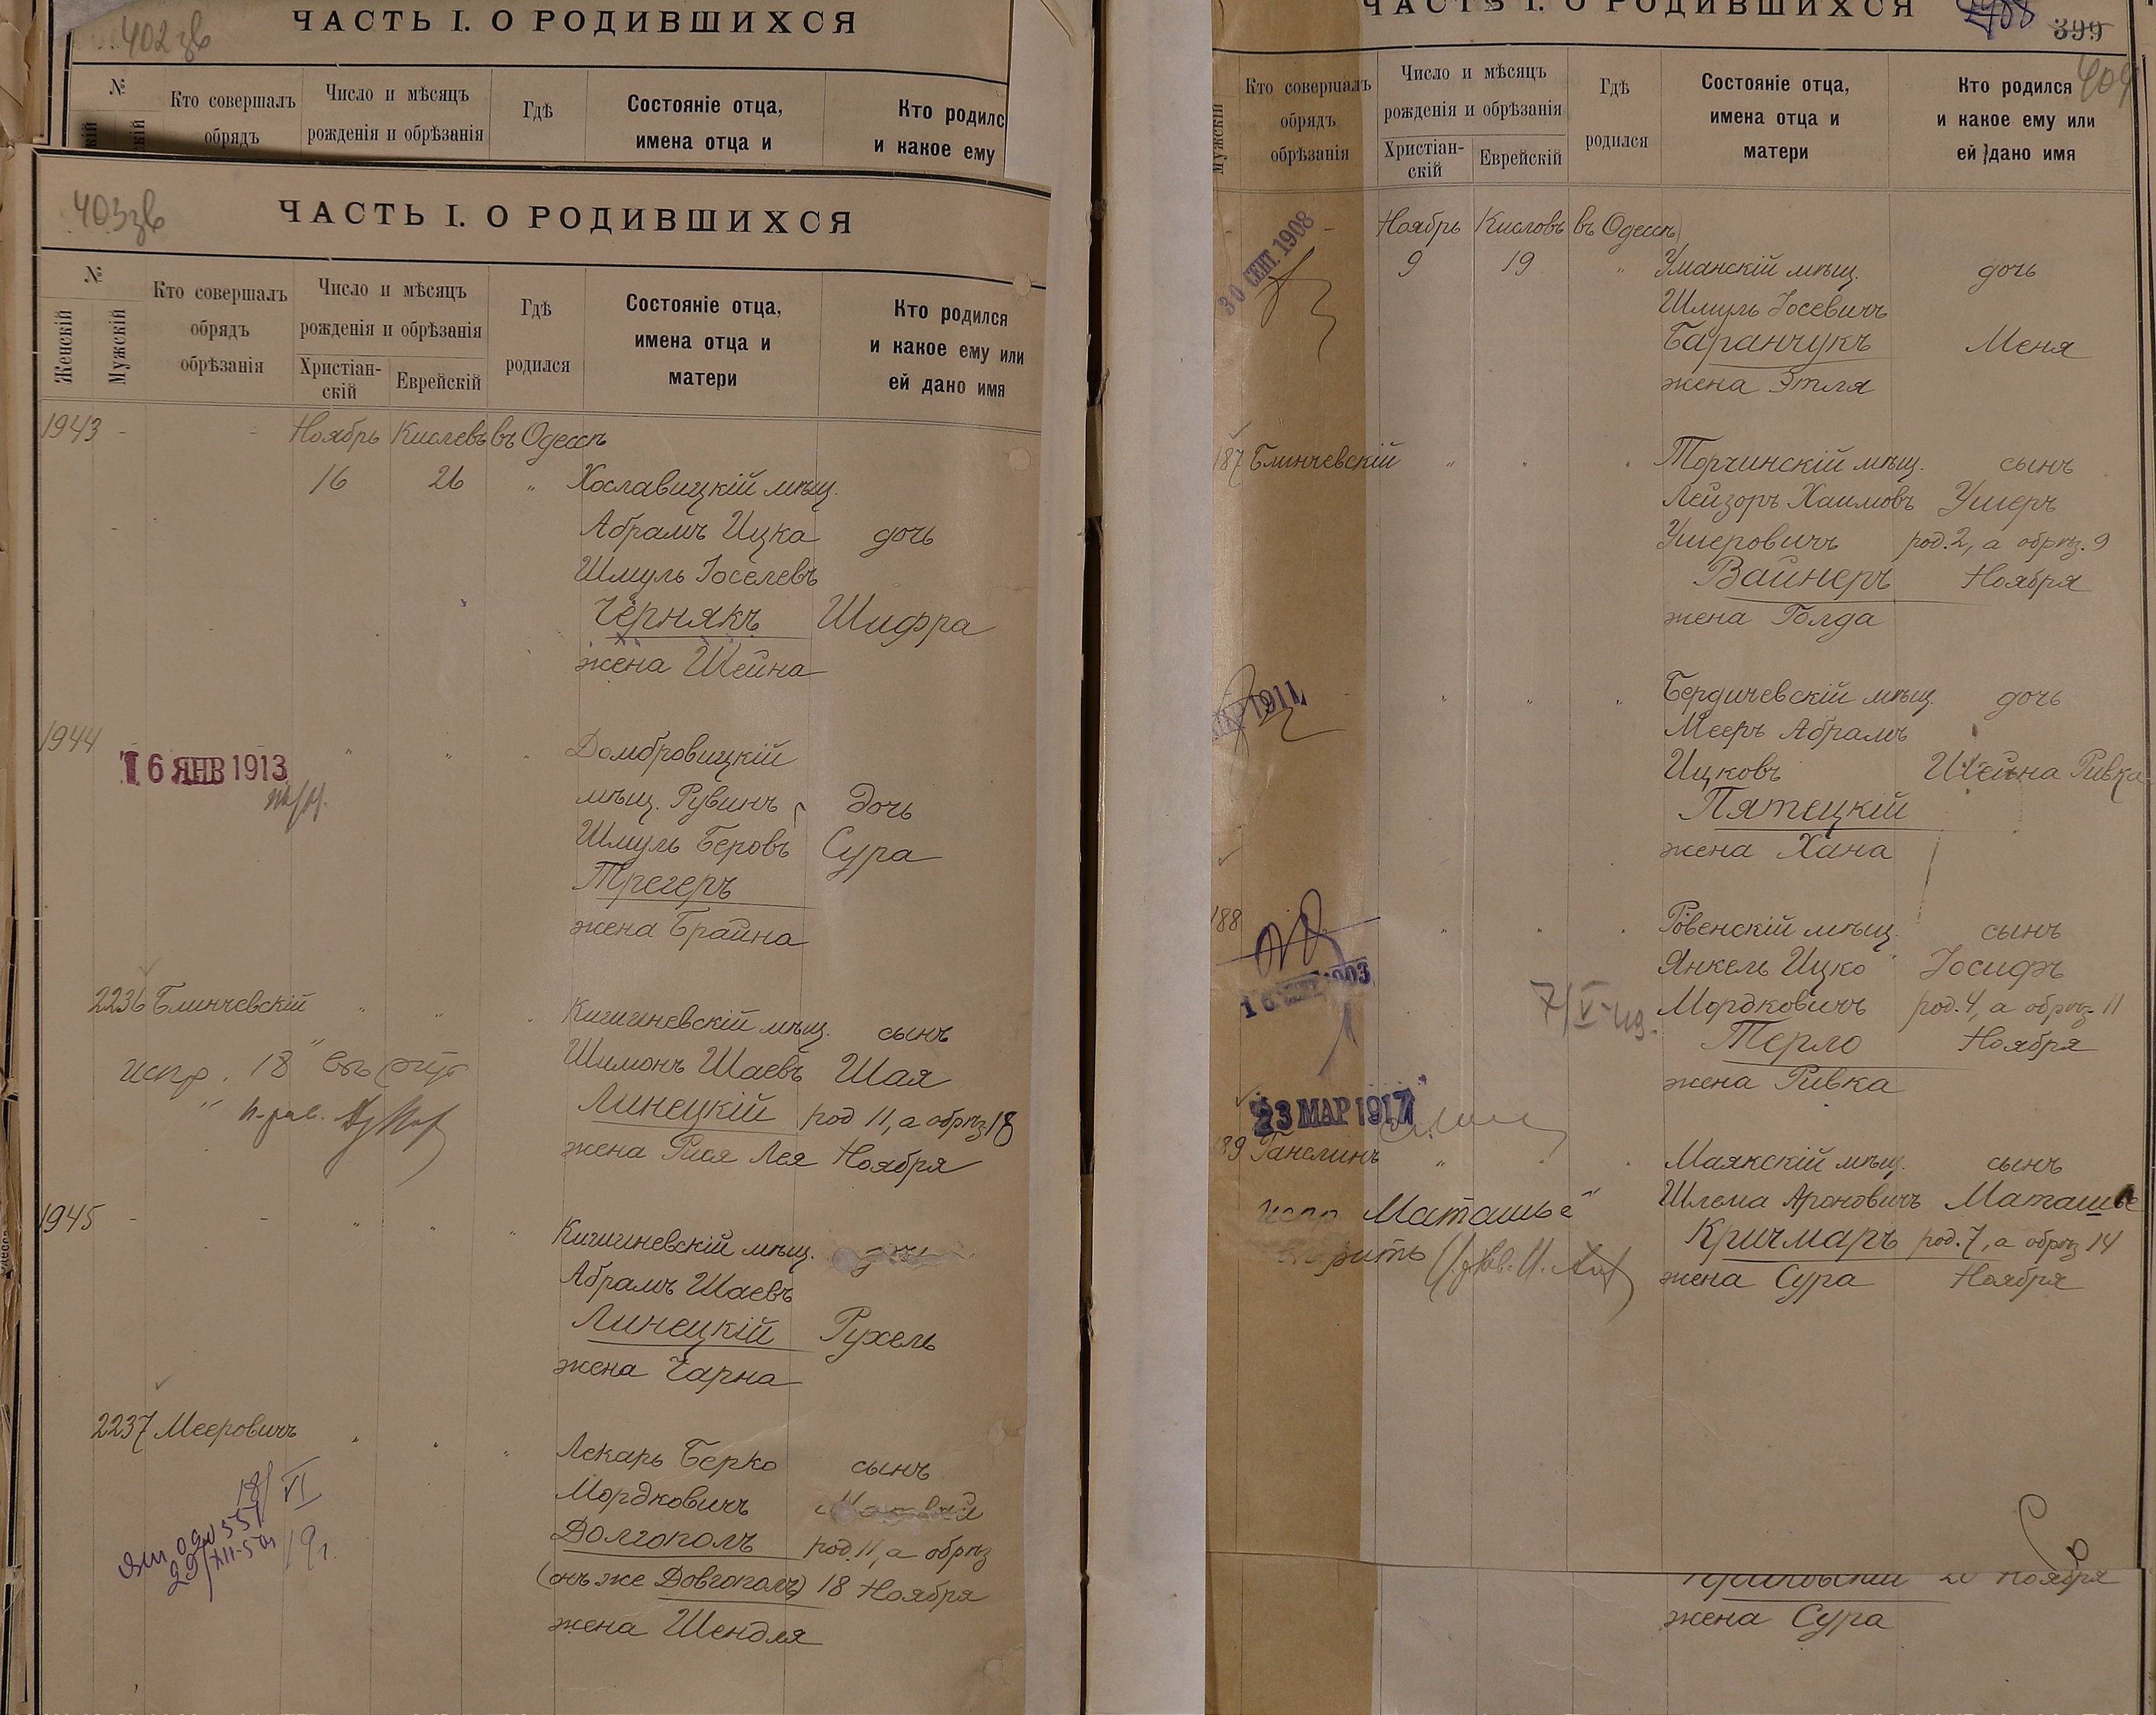 402 зв
ЧАСТЬ I. О РОДИВШИХСЯ
№
Кто совершалъ
обрядъ
Число и мѣсяцъ
рожденія и обрѣзанія
Гдѣ
Состояніе отца,
имена отца и
Кто родилс
и какое ему
403 зв
ЧАСТЬ I. О РОДИВШИХСЯ
№
Женскій
Мужскій
Кто совершалъ
обрядъ
обрѣзанія
Число и мѣсяцъ
рожденія и обрѣзанія
Христіан-
скій
Еврейскій
Гдѣ
родился
Состояніе отца,
имена отца и
матери
Кто родился
и какое ему или
ей дано имя
1943 - - Ноябрь Кислевъ въ Одессѣ
16 26 " Хославицкій мѣщ.
Абрамъ Ицка дочь
Шмуль Іоселевъ
Чернякъ Шифра
жена Шейна
1944 " " Домбровицкій
16 ЯНВ 1913
мѣщ. Рувинъ дочь
Шмуль Беровъ Сура
Трегеръ
жена Брайна
2236 Блинчевскій " " Кишиневскій мѣщ. сынъ
испр. 18
Шимонъ Шаевъ Шая
Линецкій род 11, а обрѣз 18
жена Рися Лея Ноября
1945 - - " " " Кишиневскій мѣщ.
Абрамъ Шаевъ
Линецкій Рухель
жена Чарна
2237 Мееровичъ " " " Лекарь Берко сынъ
Мордковичъ
Долгополъ род. 11, а обрѣз
(онъ же Довгополъ) 18 Ноября
жена Шендля
18/VI
19г.
ЧАСТЬ I. О РОДИВШИХСЯ
399
404
Мужскій
Кто совершалъ
обрядъ
обрѣзанія
Число и мѣсяцъ
рожденія и обрѣзанія
Христіан-
скій
Еврейскій
Гдѣ
родился
Состояніе отца,
имена отца и
матери
Кто родился
и какое ему или
ей дано имя
- Ноябрь Кисловъ въ Одессѣ
30 СЕНТ. 1908
9 19 " Уманскій мѣщ. дочь
Шмуль Іосевичъ
Баранчукъ Меня
жена Этля
187 Блинчевскій " " " Торчинскій мѣщ. сынъ
Лейзоръ Хаимовъ Ушеръ
Ушеровичъ род. 2, а обрѣз. 9
Вайнеръ Ноября
жена Голда
1911
" " " Бердичевскій мѣщ. дочь
Мееръ Абрамъ
Ицковъ Шейна Ривка
Пятецкій
жена Хана
188 " " " Ровенскій мѣщ. сынъ
Янкель Ицко Іосифъ
Мордковичъ род. 4, а обрѣз 11
Терло Ноября
жена Ривка
23 МАР 1917
189 Ганелинъ " " " Маякскій мѣщ. сынъ
Шлема Ароновичъ Маташье
испр Маташье
Кричмаръ род. 7, а обрѣз 14
жена Сура Ноября
20 Ноября
жена Сура